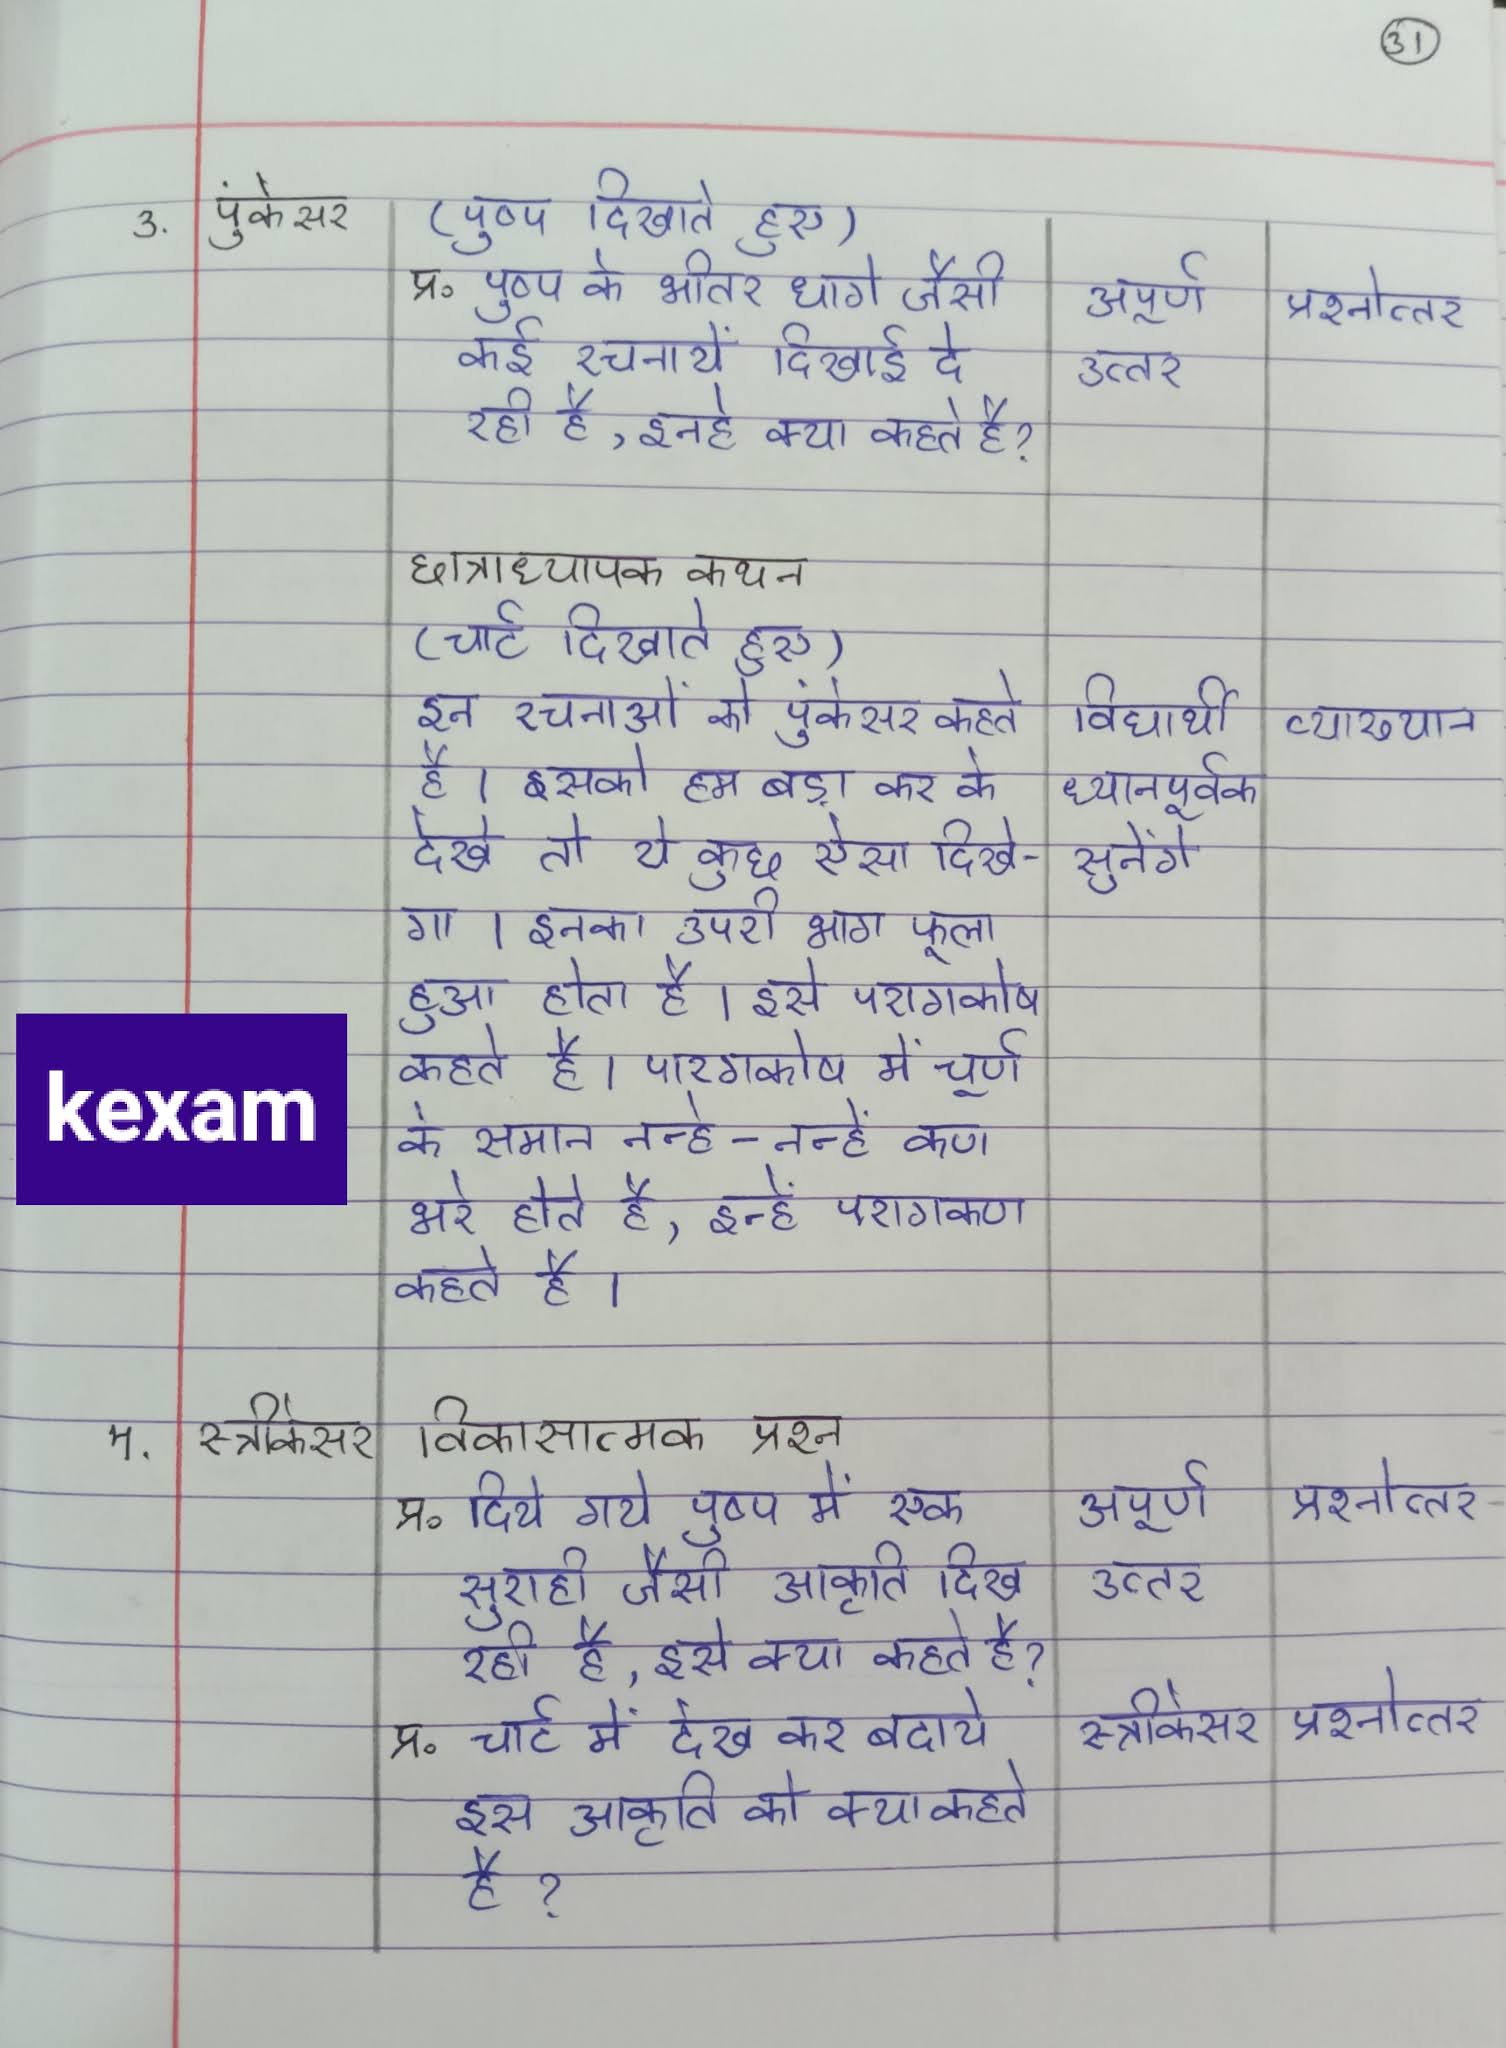 31
3. पुंकेसर (पुष्प दिखाते हुए)
प्र॰ पुष्प के भीतर धागे जैसी अपूर्ण प्रश्नोत्तर
कई रचनायें दिखाई दे उत्तर
रही है, इनहे क्या कहते है?
छात्राध्यापक कथन
(चार्ट दिखाते हुए)
इन रचनाओं को पुंकेसर कहते विद्यार्थी व्याख्यान
है। इसको हम बड़ा कर के ध्यानपूर्वक
देखे तो ये कुछ ऐसा दिखे- सुनेंगे
गा। इनका उपरी भाग फूला
हुआ होता है। इसे परागकोष
कहते है। पारगकोष में चूर्ण
के समान नन्हे-नन्हें कण
kexam
भरे होते है, इन्हें परागकण
कहते है।
4. स्त्रीकेसर विकासात्मक प्रश्न
प्र॰ दिये गये पुष्प में एक अपूर्ण प्रश्नोत्तर
सुराही जैसी आकृति दिख उत्तर
रही है, इसे क्या कहते है?
प्र॰ चार्ट में देख कर बताये स्त्रीकेसर प्रश्नोत्तर
इस आकृति को क्या कहते
है?